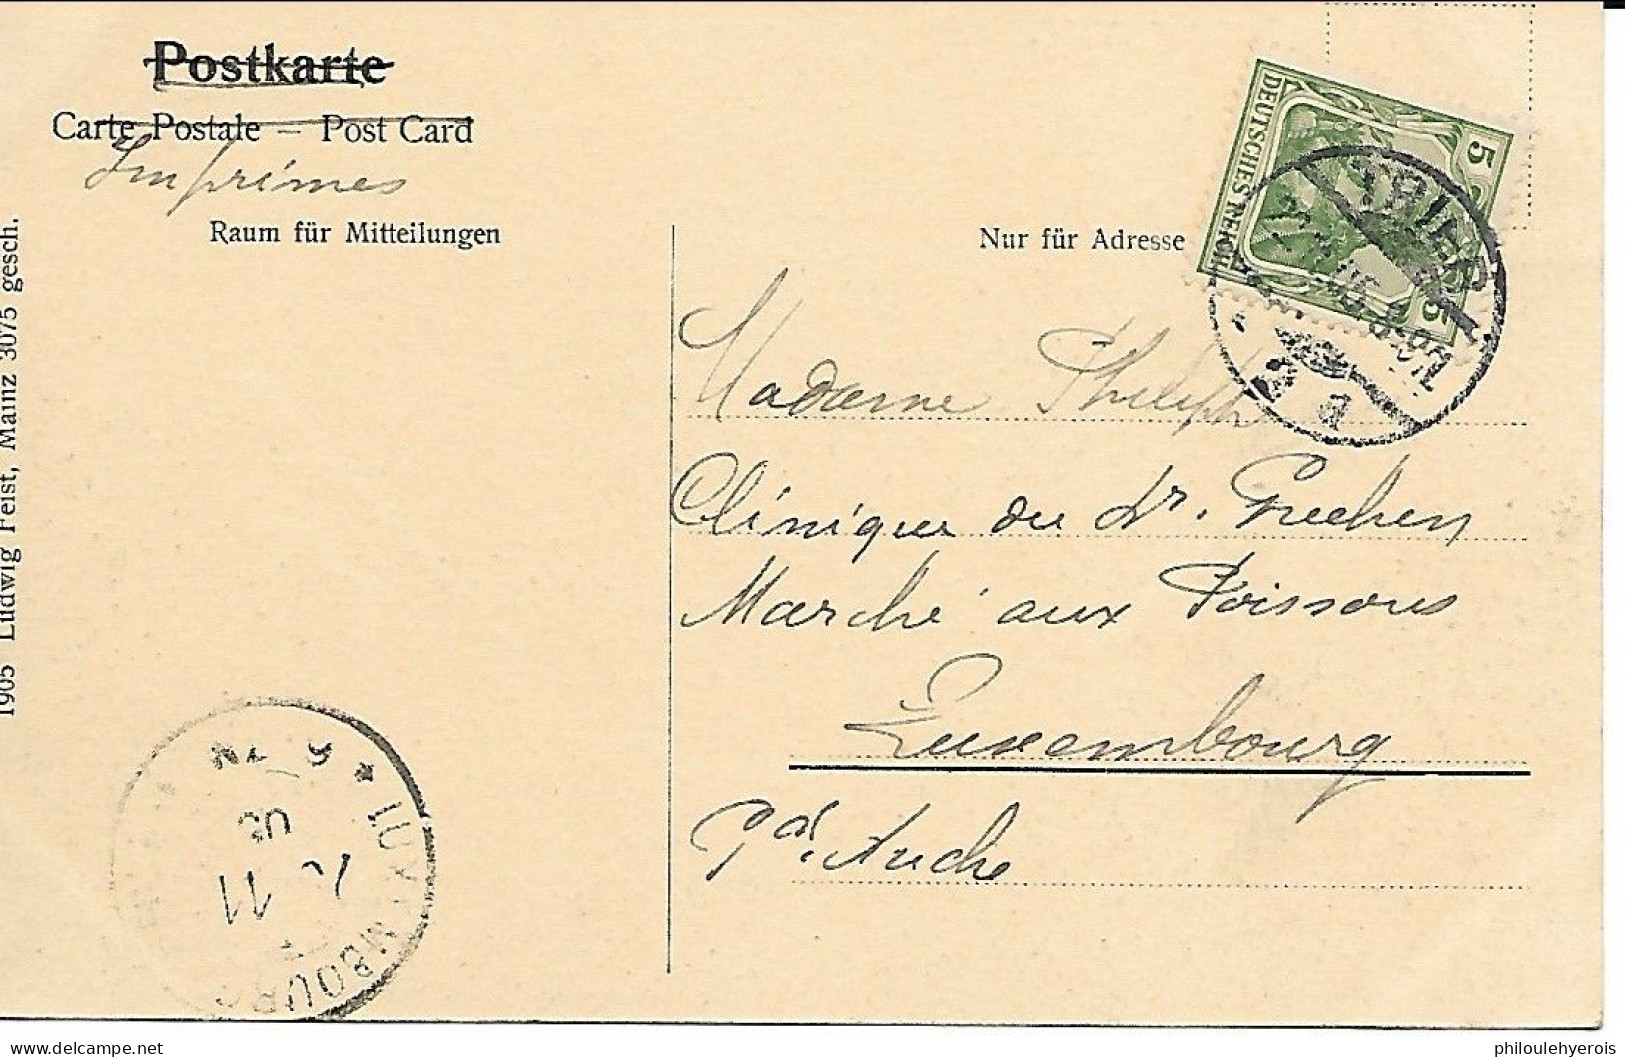 Postkarte
Carte Postale — Post Card
Imprimes
Raum für Mitteilungen
Nur für Adresse
DEUTSCHES REICH
5
5
TRIER
1905 Ludwig Feist, Mainz 3075 gesch.
Madame Philipp
Clinique du Dr.
Marché aux Poissons
Luxembourg
11
delcampe.net
philoulehyerois